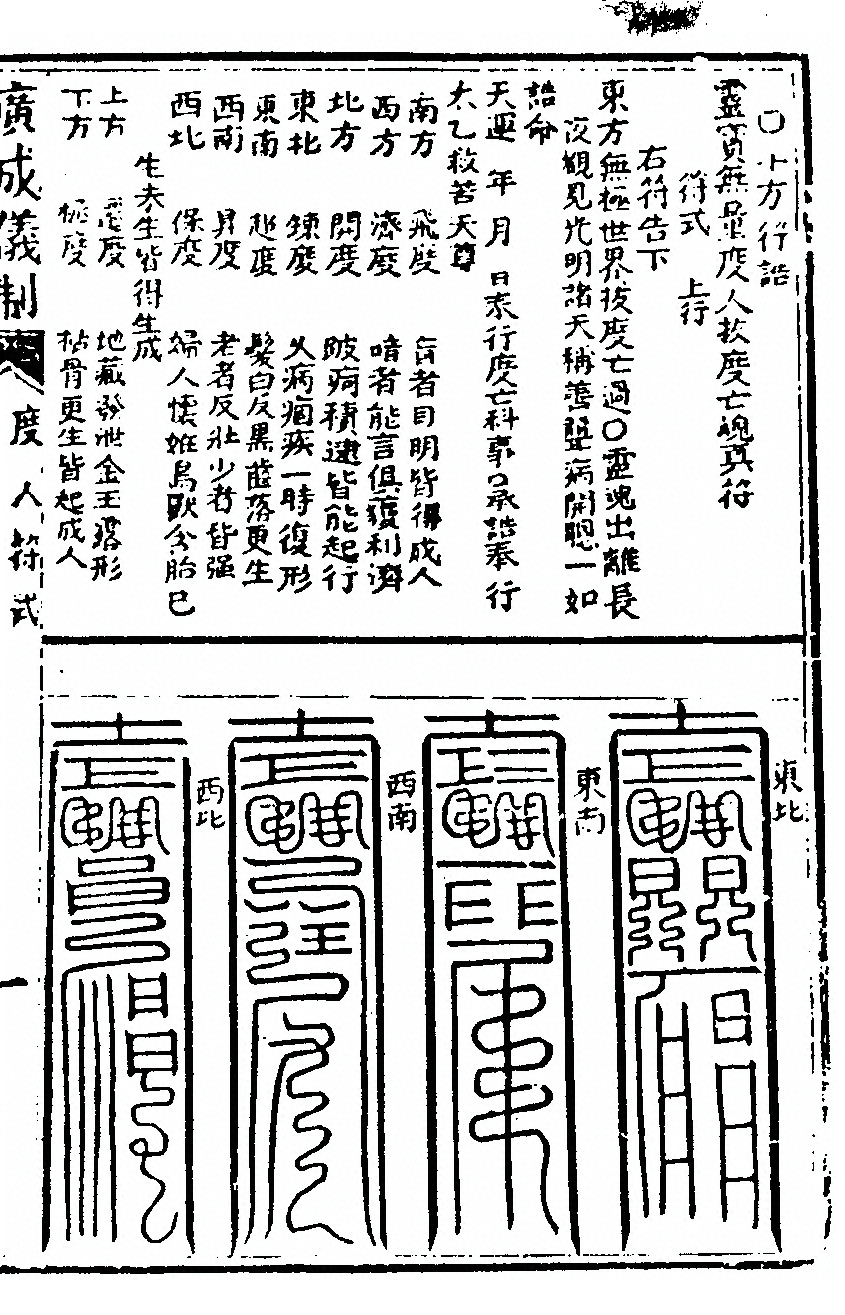 ○十方行誥
靈寶無量度人拔度亡魂真符
符式 上行
右符告下
東方無極世界拔度亡過○靈魂出離長
夜觀見光明諸天稱善聾病開聰一如
誥命
天運 年 月 日泰行度亡科事○承誥奉行
太乙救苦天尊
南方 飛度 盲者目明皆得成人
西方 濟度 喑者能言俱獲利濟
北方 開度 跛痾積逮皆能起行
東北 鍊度 久病痼疾一時復形
東南 超度 髮白反黑齒落更生
西南 昇度 老者反壯少者皆强
西北 保度 婦人懷姙鳥獸含胎已
生未生皆得生成
上方 度 地藏發泄金玉露形
下方 度 枯骨更生皆起成人
廣成儀制
度人符式
一
東北
東南
西南
西北